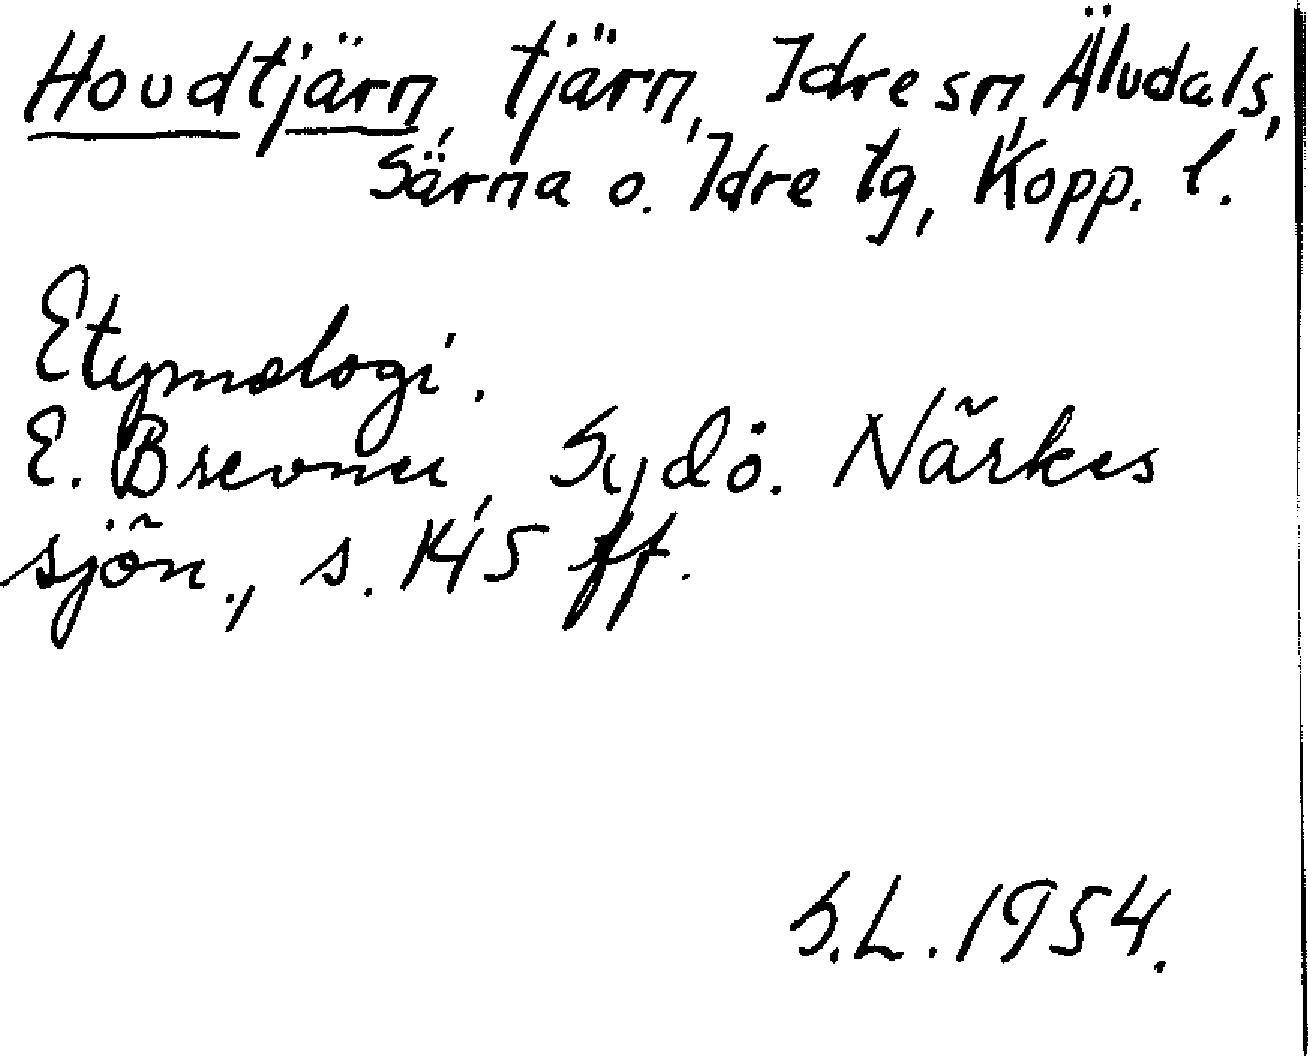 Hovdtjärn, tjärn, Idre sn, Älvdals,
Särna o. Idre tg, Kopp. l.
Etymologi.
E. Brevner, Sydö. Närkes
sjön., s. 145 ff.
S.L. 1954.